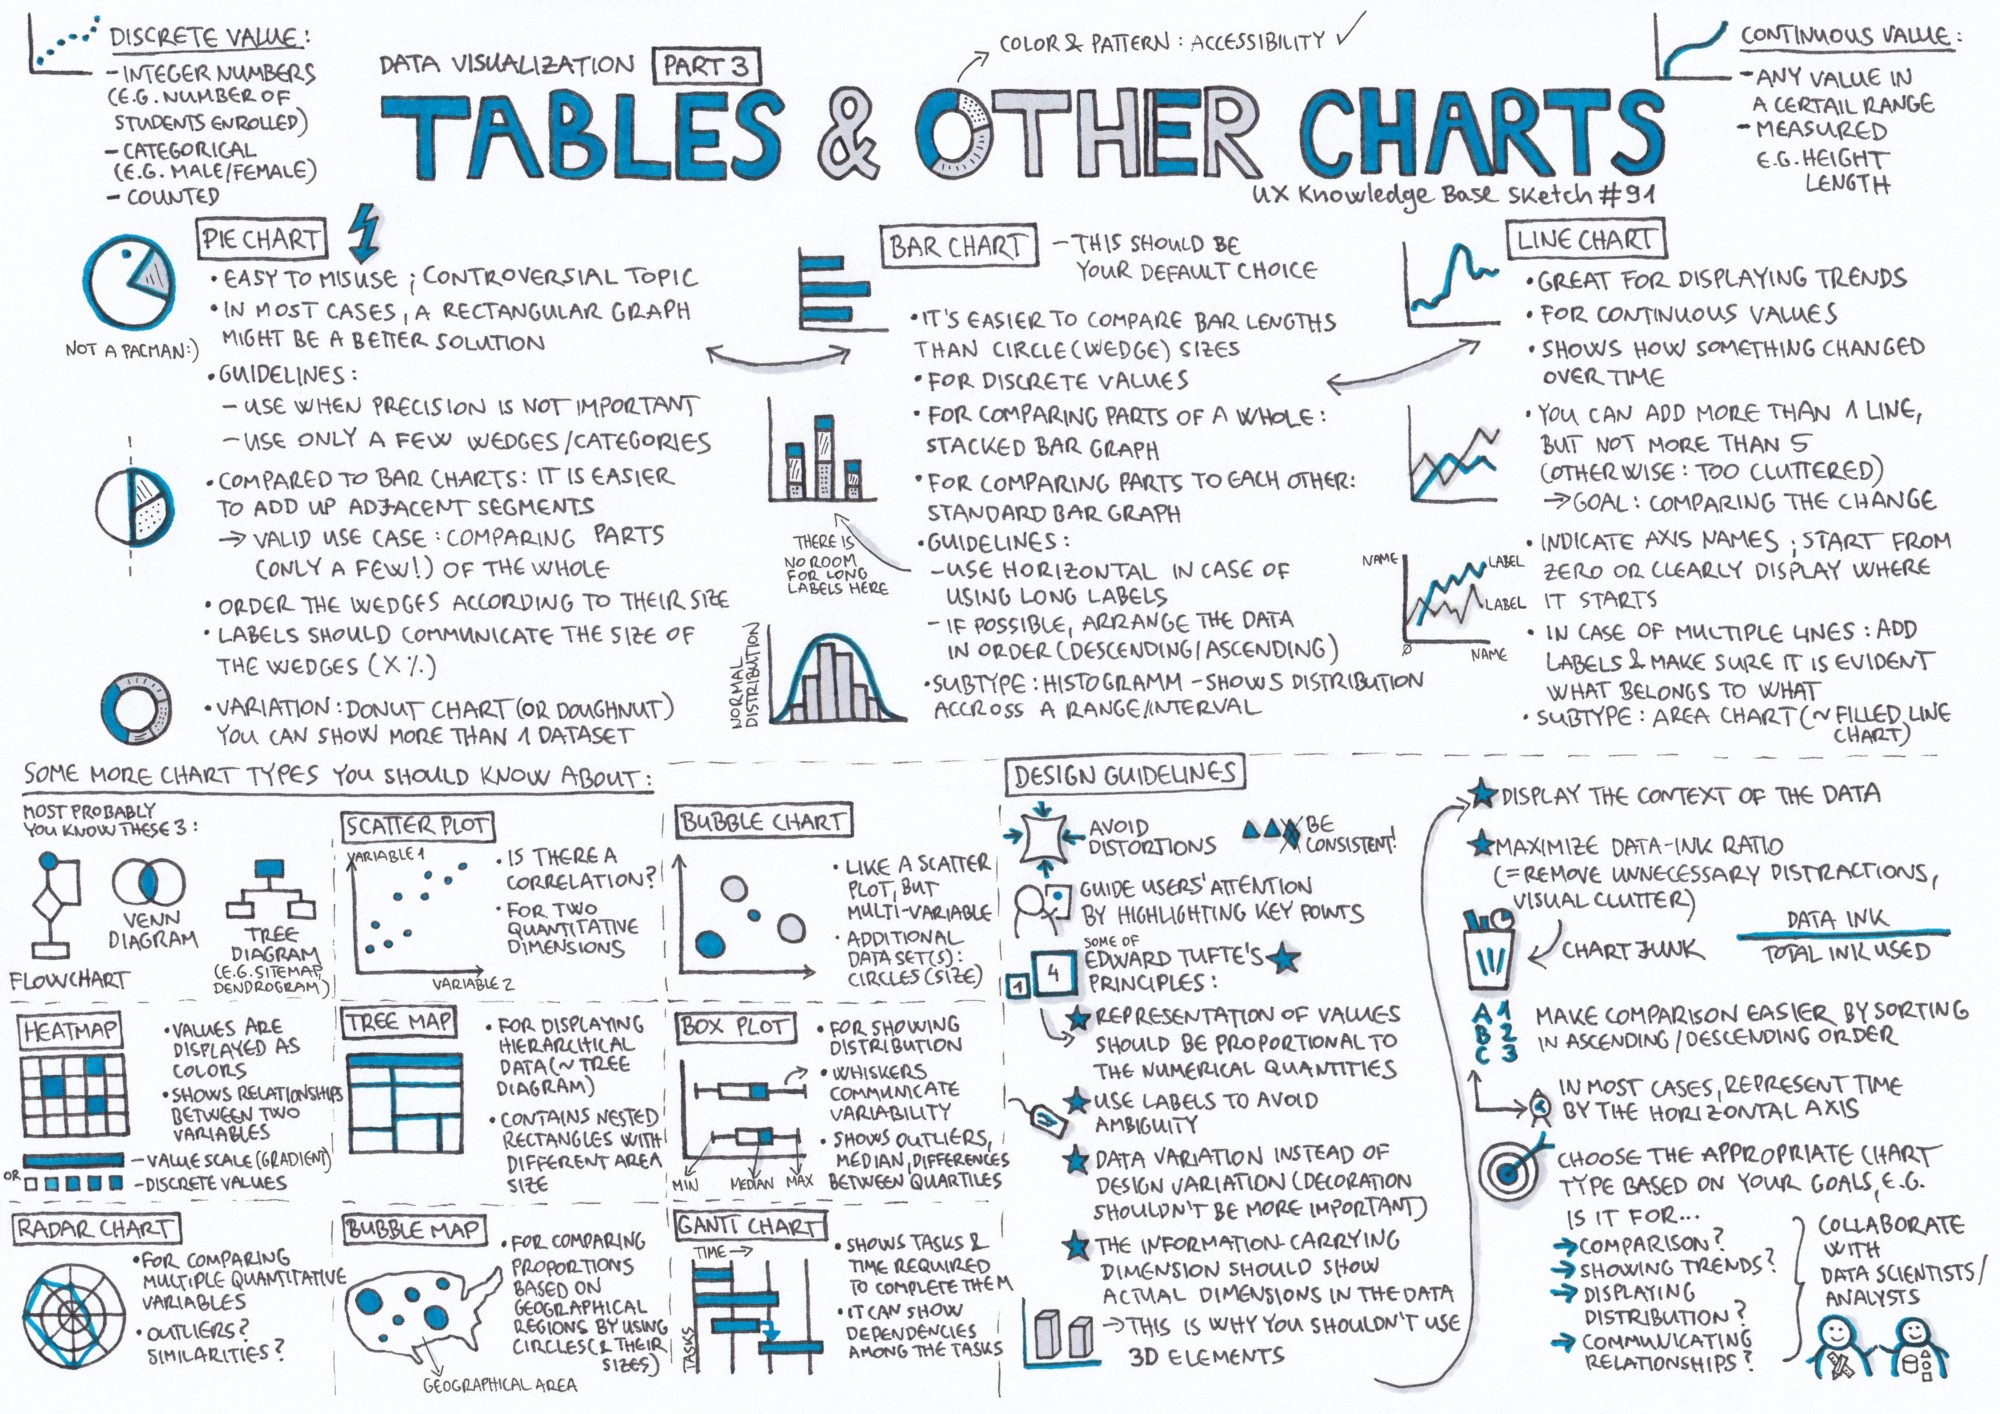 DISCRETE VALUE:
- INTEGER NUMBERS
(E.G. NUMBER OF
STUDENTS ENROLLED)
- CATEGORICAL
(E.G. MALE/FEMALE)
- COUNTED
DATA VISUALIZATION PART 3
COLOR & PATTERN: ACCESSIBILITY ✓
TABLES & OTHER CHARTS
UX Knowledge Base Sketch #91
CONTINUOUS VALUE:
- ANY VALUE IN
A CERTAIL RANGE
- MEASURED
E.G. HEIGHT
LENGTH
PIE CHART
NOT A PACMAN:)
• EASY TO MISUSE; CONTROVERSIAL TOPIC
• IN MOST CASES, A RECTANGULAR GRAPH
MIGHT BE A BETTER SOLUTION
• GUIDELINES:
- USE WHEN PRECISION IS NOT IMPORTANT
- USE ONLY A FEW WEDGES/CATEGORIES
• COMPARED TO BAR CHARTS: IT IS EASIER
TO ADD UP ADJACENT SEGMENTS
→ VALID USE CASE: COMPARING PARTS
(ONLY A FEW!) OF THE WHOLE
• ORDER THE WEDGES ACCORDING TO THEIR SIZE
• LABELS SHOULD COMMUNICATE THE SIZE OF
THE WEDGES (X%)
• VARIATION: DONUT CHART (OR DOUGHNUT)
YOU CAN SHOW MORE THAN 1 DATASET
BAR CHART - THIS SHOULD BE
YOUR DEFAULT CHOICE
• IT'S EASIER TO COMPARE BAR LENGTHS
THAN CIRCLE (WEDGE) SIZES
• FOR DISCRETE VALUES
• FOR COMPARING PARTS OF A WHOLE:
STACKED BAR GRAPH
• FOR COMPARING PARTS TO EACH OTHER:
STANDARD BAR GRAPH
• GUIDELINES:
- USE HORIZONTAL IN CASE OF
USING LONG LABELS
- IF POSSIBLE, ARRANGE THE DATA
IN ORDER (DESCENDING/ASCENDING)
• SUBTYPE: HISTOGRAMM - SHOWS DISTRIBUTION
ACCROSS A RANGE/INTERVAL
THERE IS
NO ROOM
FOR LONG
LABELS HERE
NORMAL
DISTRIBUTION
LINE CHART
• GREAT FOR DISPLAYING TRENDS
• FOR CONTINUOUS VALUES
• SHOWS HOW SOMETHING CHANGED
OVER TIME
• YOU CAN ADD MORE THAN 1 LINE,
BUT NOT MORE THAN 5
(OTHERWISE: TOO CLUTTERED)
→ GOAL: COMPARING THE CHANGE
• INDICATE AXIS NAMES; START FROM
ZERO OR CLEARLY DISPLAY WHERE
IT STARTS
• IN CASE OF MULTIPLE LINES: ADD
LABELS & MAKE SURE IT IS EVIDENT
WHAT BELONGS TO WHAT
• SUBTYPE: AREA CHART (~ FILLED LINE
CHART)
NAME
LABEL
LABEL
Ø
NAME
SOME MORE CHART TYPES YOU SHOULD KNOW ABOUT:
MOST PROBABLY
YOU KNOW THESE 3:
FLOWCHART
VENN
DIAGRAM
TREE
DIAGRAM
(E.G. SITEMAP,
DENDROGRAM)
SCATTER PLOT
VARIABLE 1
VARIABLE 2
• IS THERE A
CORRELATION?
• FOR TWO
QUANTITATIVE
DIMENSIONS
BUBBLE CHART
• LIKE A SCATTER
PLOT, BUT
MULTI-VARIABLE
• ADDITIONAL
DATA SET(S):
CIRCLES (SIZE)
HEATMAP
• VALUES ARE
DISPLAYED AS
COLORS
• SHOWS RELATIONSHIPS
BETWEEN TWO
VARIABLES
- VALUE SCALE (GRADIENT)
OR
- DISCRETE VALUES
TREE MAP
• FOR DISPLAYING
HIERARCHTICAL
DATA (~ TREE
DIAGRAM)
• CONTAINS NESTED
RECTANGLES WITH
DIFFERENT AREA
SIZE
BOX PLOT
• FOR SHOWING
DISTRIBUTION
• WHISKERS
COMMUNICATE
VARIABILITY
• SHOWS OUTLIERS,
MEDIAN, DIFFERENCES
BETWEEN QUARTILES
MIN MEDIAN MAX
RADAR CHART
• FOR COMPARING
MULTIPLE QUANTITATIVE
VARIABLES
• OUTLIERS?
SIMILARITIES?
BUBBLE MAP
• FOR COMPARING
PROPORTIONS
BASED ON
GEOGRAPHICAL
REGIONS BY USING
CIRCLES (& THEIR
SIZES)
GEOGRAPHICAL AREA
GANTT CHART
TIME →
TASKS
• SHOWS TASKS &
TIME REQUIRED
TO COMPLETE THEM
• IT CAN SHOW
DEPENDENCIES
AMONG THE TASKS
DESIGN GUIDELINES
AVOID
DISTORTIONS
BE
CONSISTENT!
GUIDE USERS' ATTENTION
BY HIGHLIGHTING KEY POINTS
1 4
SOME OF
EDWARD TUFTE'S ★
PRINCIPLES:
★ REPRESENTATION OF VALUES
SHOULD BE PROPORTIONAL TO
THE NUMERICAL QUANTITIES
★ USE LABELS TO AVOID
AMBIGUITY
★ DATA VARIATION INSTEAD OF
DESIGN VARIATION (DECORATION
SHOULDN'T BE MORE IMPORTANT)
★ THE INFORMATION-CARRYING
DIMENSION SHOULD SHOW
ACTUAL DIMENSIONS IN THE DATA
→ THIS IS WHY YOU SHOULDN'T USE
3D ELEMENTS
★ DISPLAY THE CONTEXT OF THE DATA
★ MAXIMIZE DATA-INK RATIO
(= REMOVE UNNECESSARY DISTRACTIONS,
VISUAL CLUTTER)
CHART JUNK
DATA INK
TOTAL INK USED
A 1
B 2
C 3
MAKE COMPARISON EASIER BY SORTING
IN ASCENDING/DESCENDING ORDER
IN MOST CASES, REPRESENT TIME
BY THE HORIZONTAL AXIS
CHOOSE THE APPROPRIATE CHART
TYPE BASED ON YOUR GOALS, E.G.
IS IT FOR...
→ COMPARISON?
→ SHOWING TRENDS?
→ DISPLAYING
DISTRIBUTION?
→ COMMUNICATING
RELATIONSHIPS?
COLLABORATE
WITH
DATA SCIENTISTS/
ANALYSTS